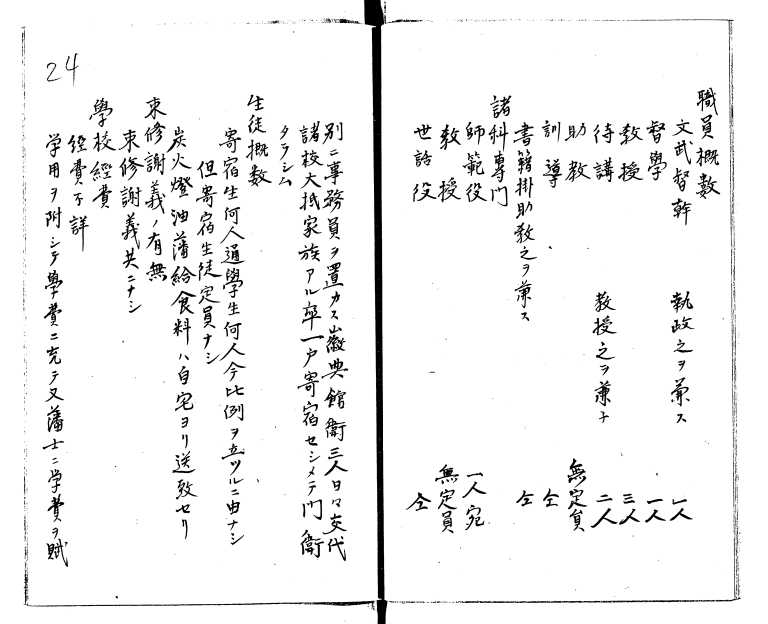 職員概數
文武督幹 執政之ヲ兼ス 一人
督學 一人
教授 三人
待講 教授之ヲ兼ナ 二人
助教 無定員
訓導 仝
書籍掛助教之ヲ兼ス 仝
諸科專門
師範役 一人宛
教授 無定員
世話役 仝
別ニ事務員ヲ置カス徽典館衛三人日々交代
諸校大抵家族アル卒一戸寄宿セシメテ門衛
タラシム
生徒概數
寄宿生何人通學生何人今比例ヲ立ツルニ由ナシ
但寄宿生徒定員ナシ
炭火燈油藩給食料ハ自宅ヨリ送致セリ
束修謝義ノ有無
束修謝義共ニナシ
學校經費
經費不詳
学用ヲ附シテ學費ニ充テ又藩士ニ学費ヲ賦
24